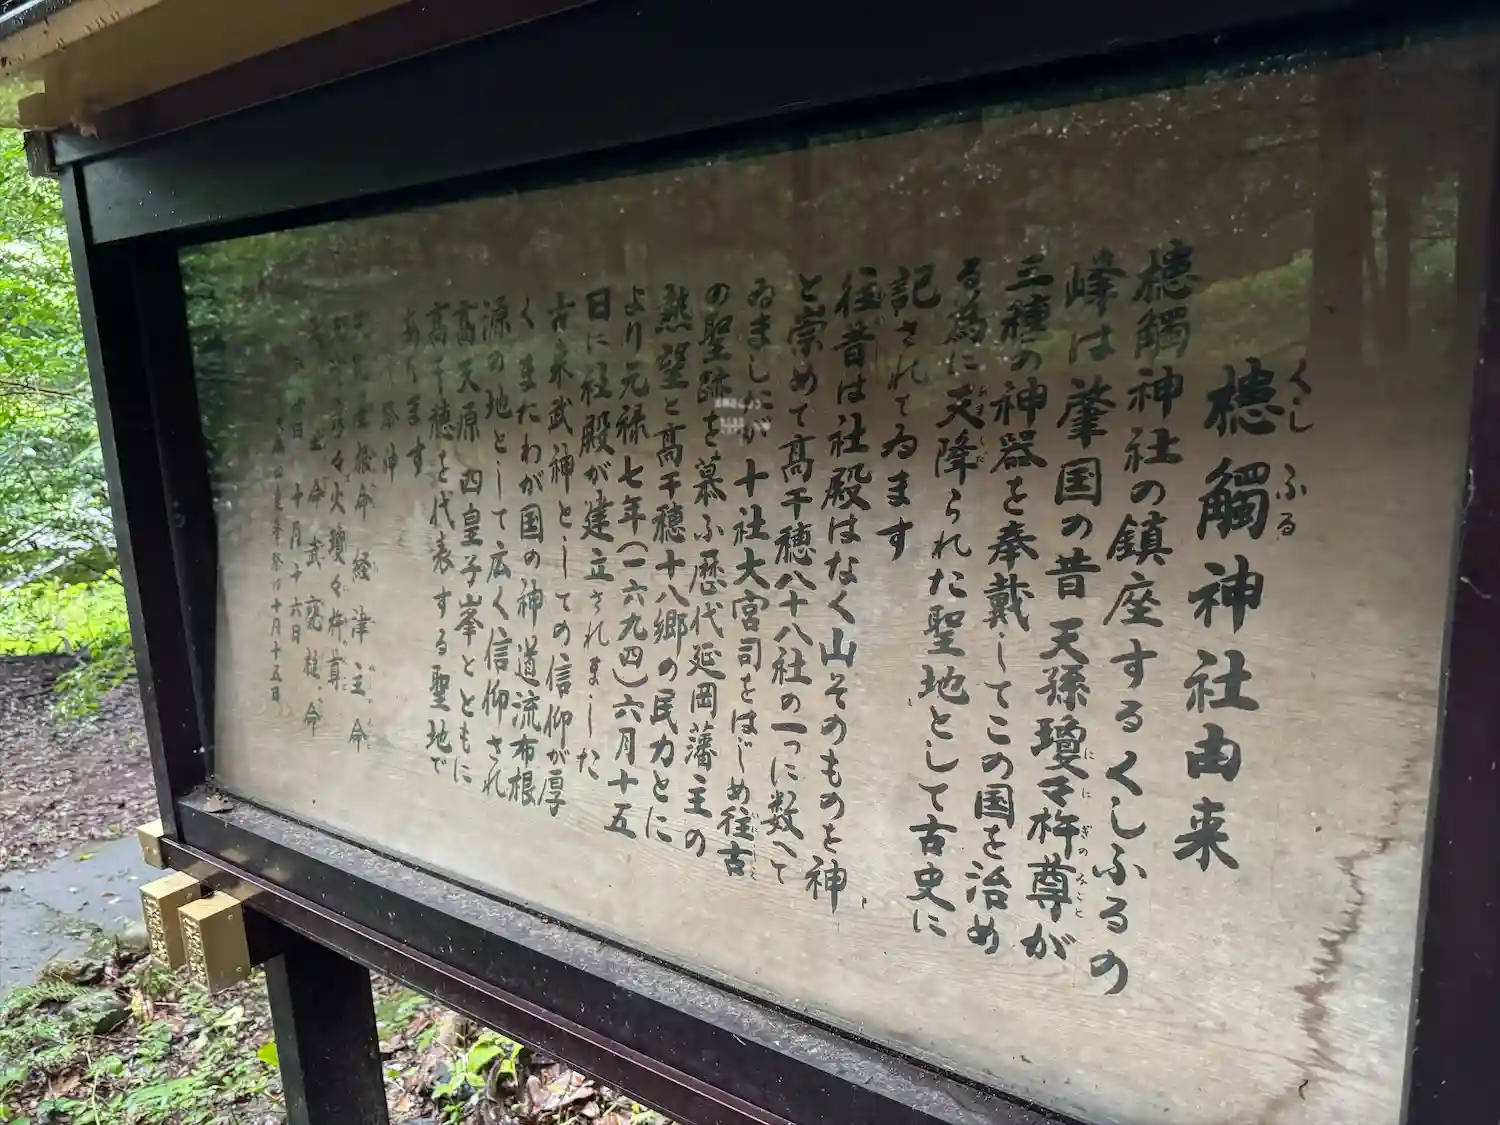 槵觸神社由来
くしふる
槵觸神社の鎮座するくしふるの
峰は肇国の昔天孫瓊々杵尊が
ににぎのみこと
三種の神器を奉戴してこの国を治め
る為に天降られた聖地として古史に
あまくだ
記されてゐます
往昔は社殿はなく山そのものを神
と崇めて高千穂八十八社の一つに数へて
ゐましたが十社大宮司をはじめ往古
の聖跡を慕ふ歴代延岡藩主の
熱望と高千穂十八郷の民力とに
より元禄七年(一六九四)六月十五
日に社殿が建立されました
古来武神としての信仰が厚
くまたわが国の神道流布根
源の地として広く信仰され
高天原四皇子峯とともに
高千穂を代表する聖地で
あります
祭神
屋根命 経津主命
彦々火瓊々杵尊
命 武甕槌命
十月十六日
十月十五日